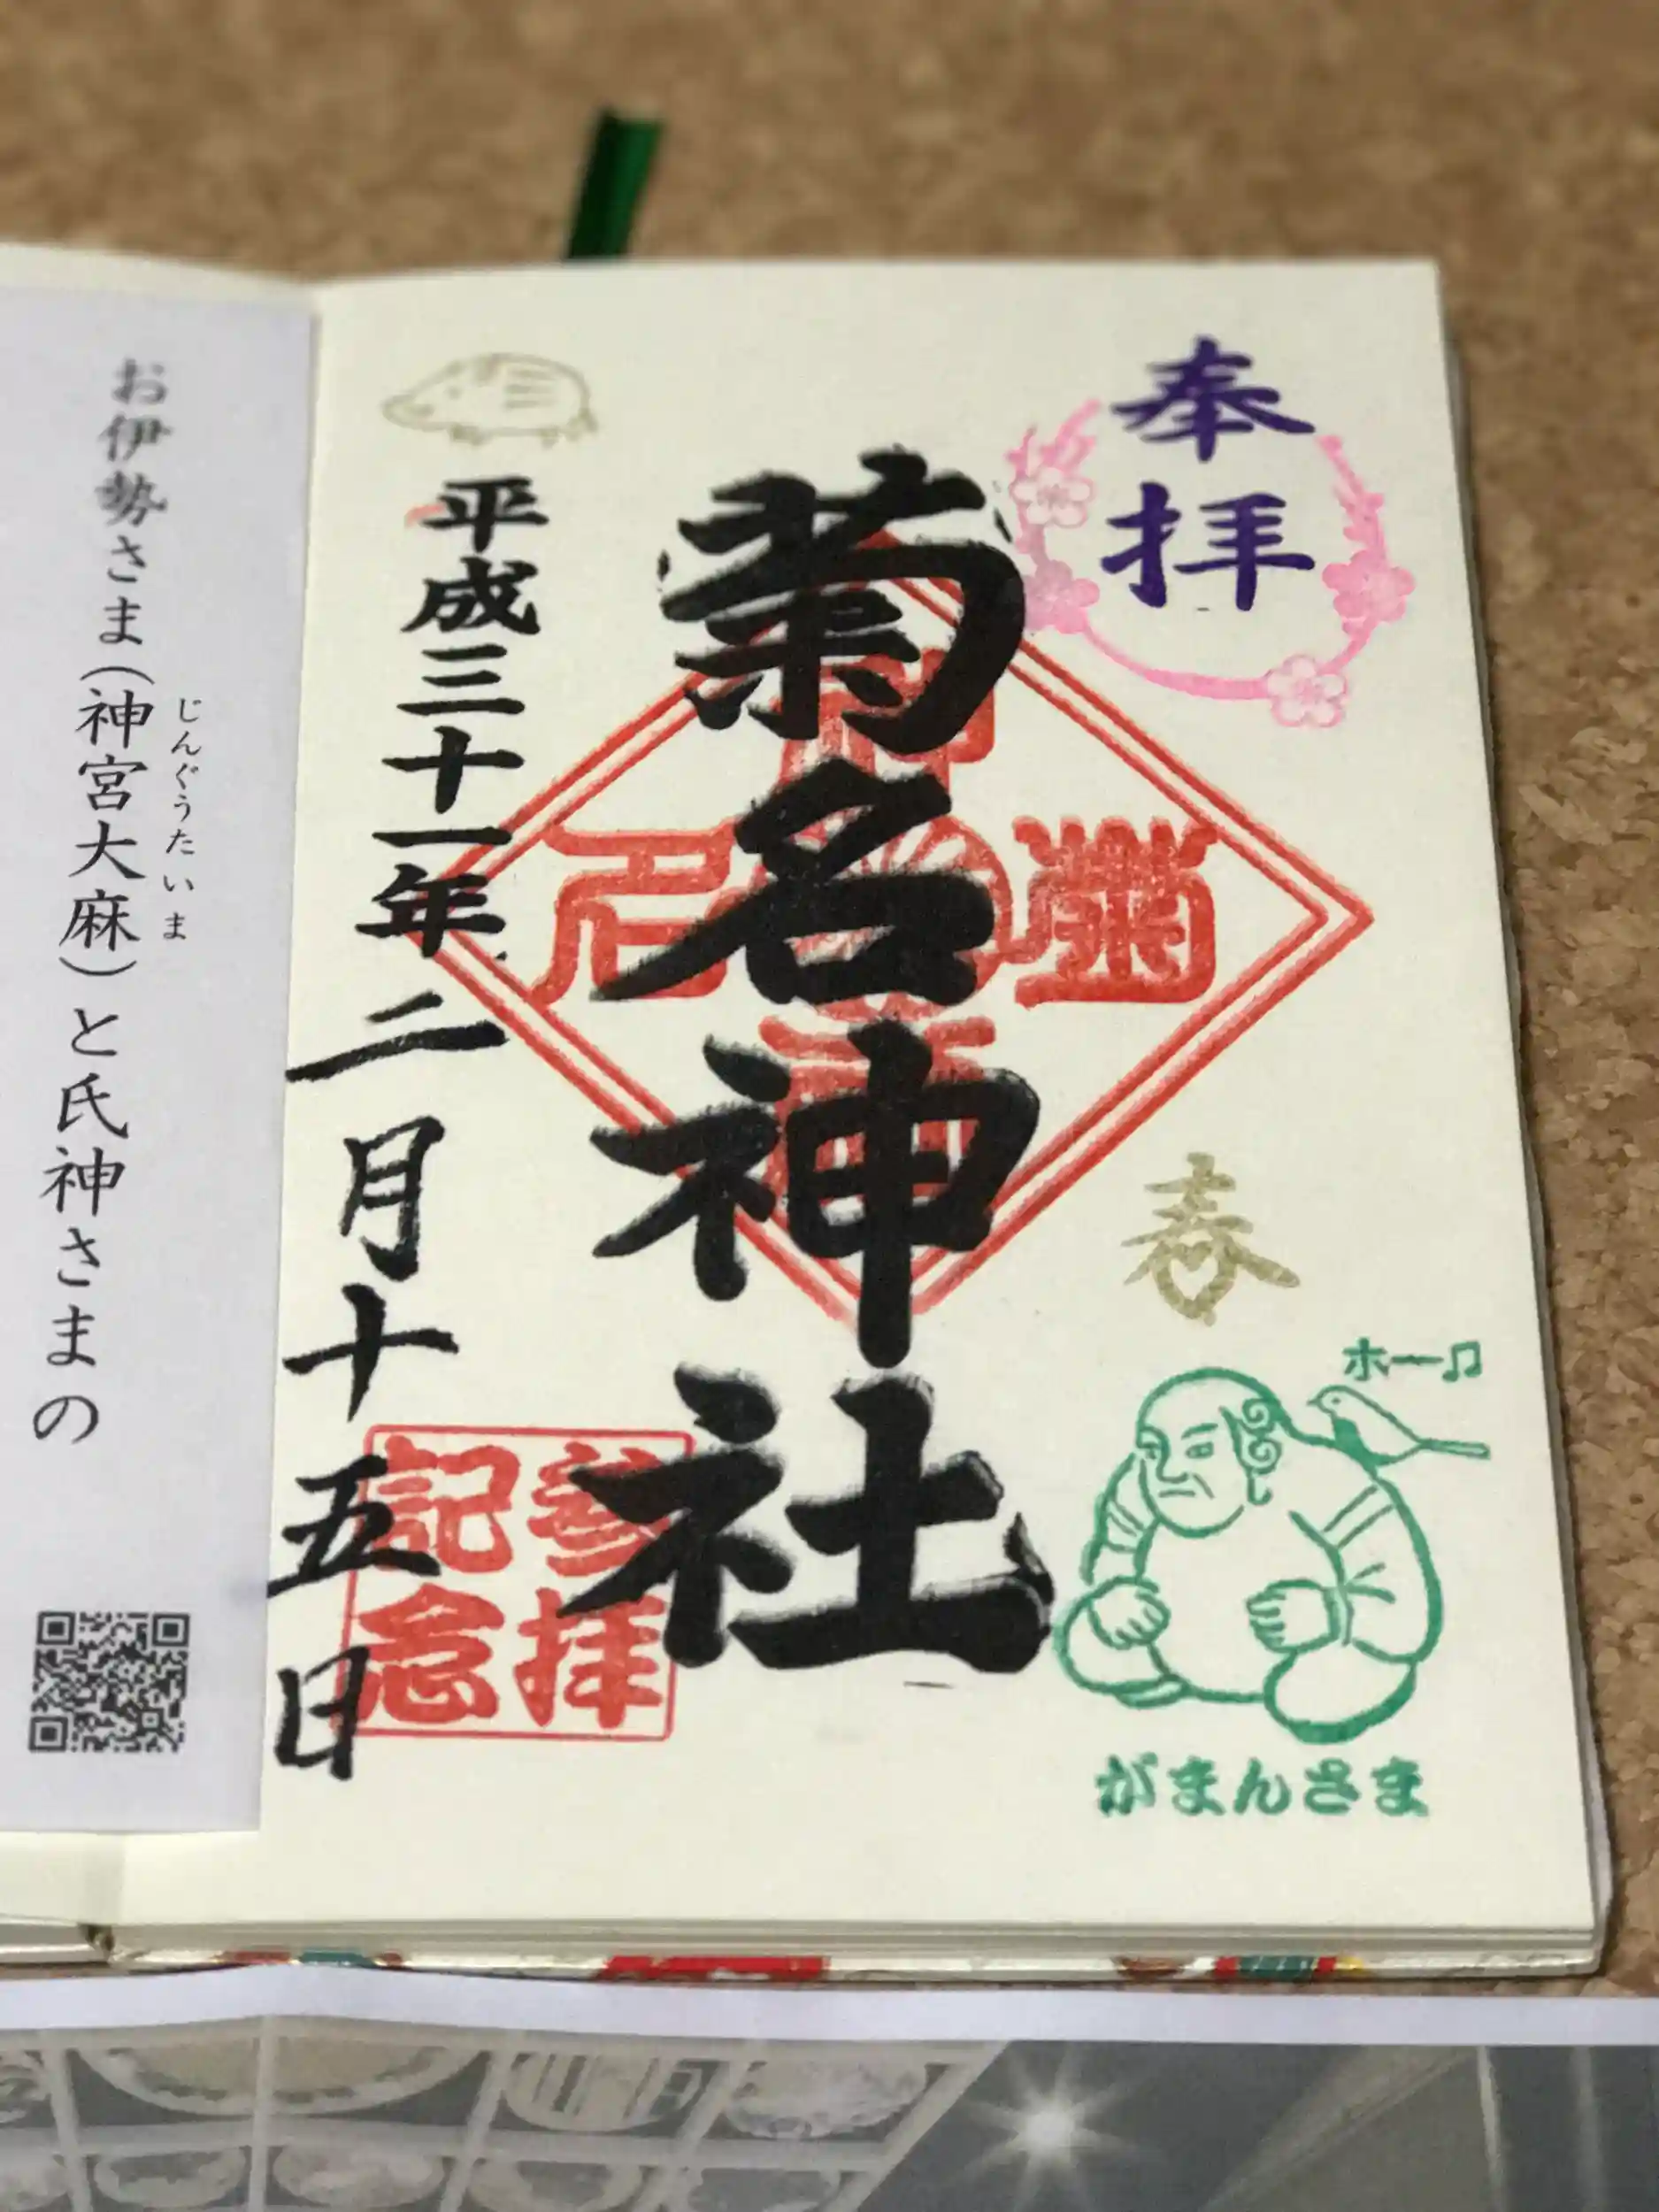 奉拝
春
ホー♫
がまんさま
菊名神社
菊名神社
参拝
記念
平成三十一年二月十五日
お伊勢さま(神宮大麻)と氏神さまの
じんぐうたいま